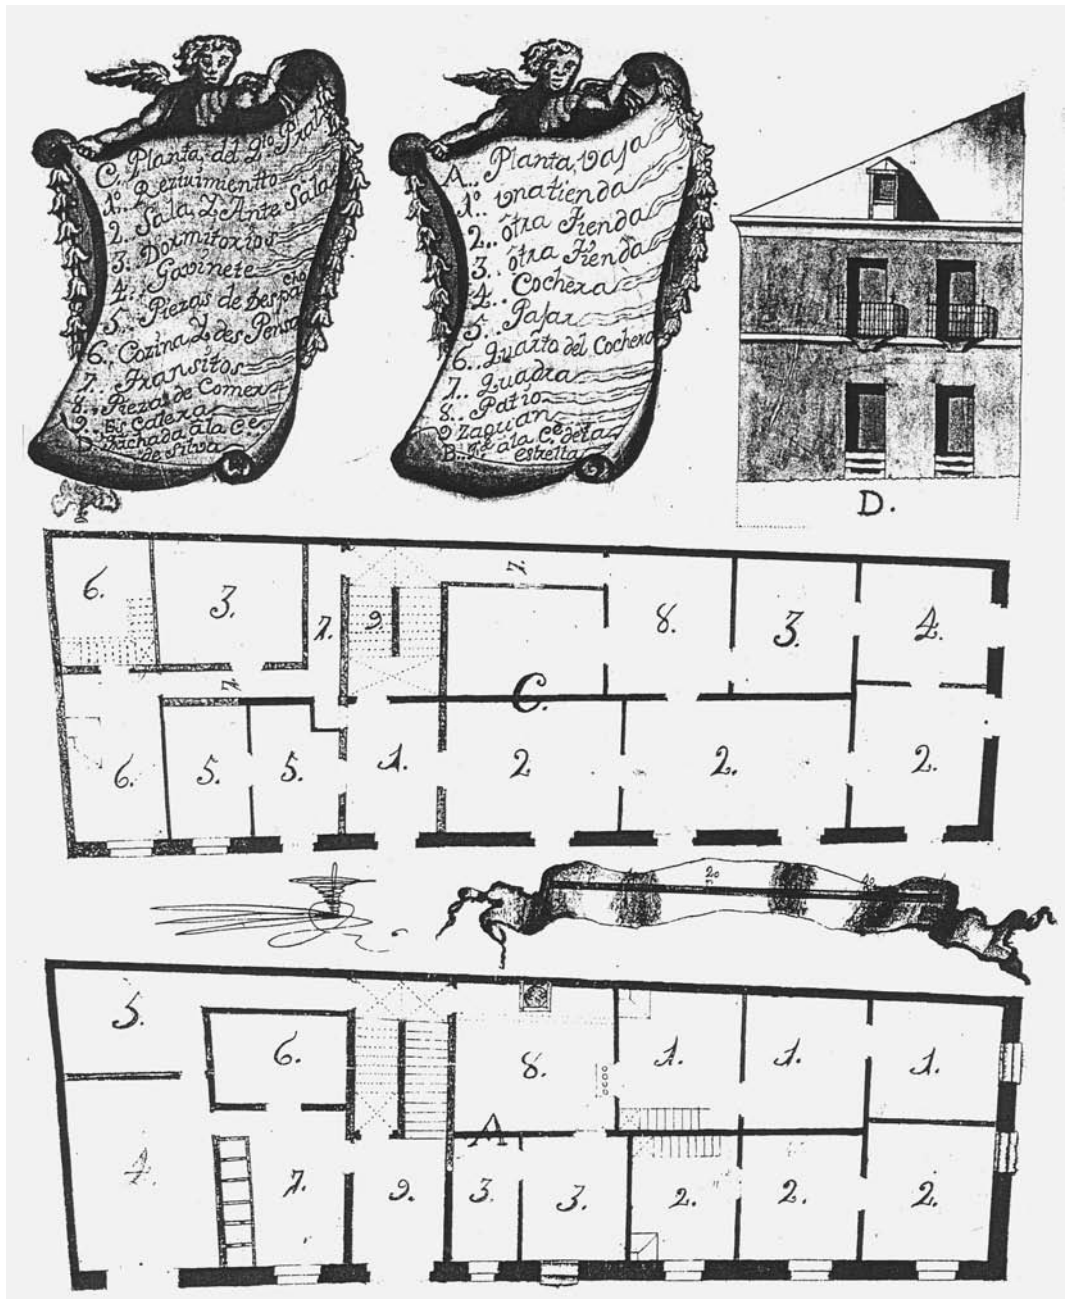 C. Planta del Qto. Pral
1º. Reziuimientto
2. Sala, y Ante Sala
3. Dormitorios
4. Gavinete
5. Piezas de Despacho
6. Cozina y des Pensa
7. Transitos
8. Piezas de Comer
9. Es Calera
D. Fachada a la Ce.
de Silva
A.. Planta, vaja
1º.. vna tienda
2.. ótra tienda
3.. ótra tienda
4.. Cochera
5.. Pajar
6.. Quarto del Cochero
7.. Quadra
8.. Patio
9 Zaguan
B.. a la Ce. de la
estrella
D.
6. 3. 7. 9. 7. 8. 3. 4.
7. C.
6. 5. 5. 1. 2 2. 2.
20
40
5. 6. 8. 1. 1. 1.
A
4. 7. 9. 3. 3. 2. 2. 2.